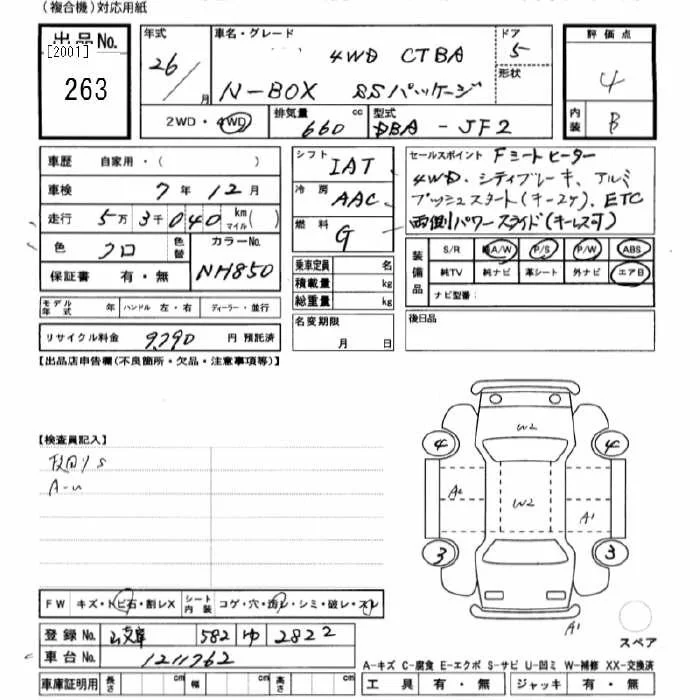 (複合機)対応用紙
出品No. 年式 車名・グレード ドア 評価点
[2001] 4WD CTBA 5
263 26/月 N-BOX SSパッケージ 形状 4
2WD・4WD 排気量 660 cc 型式 DBA - JF2 内装 B
車歴 自家用・( )
車検 7年 12月
走行 5万 3千 040 km マイル( )
色 クロ 色替 カラーNo. NH850
保証書 有・無
モデル年式 年 ハンドル 左・右 ディーラー・並行
リサイクル料金 9,790 円 預託済
シフト IAT
冷房 AAC
燃料 G
乗車定員 名
積載量 kg
総重量 kg
名変期限 月 日
セールスポイント Fシートヒーター
4WD、シティブレーキ、アルミ
プッシュスタート(キー2ヶ)、ETC
両側パワースライド(キーレス可)
装備品 S/R 純A/W P/S P/W ABS
純TV 純ナビ 革シート 外ナビ エアB
ナビ型番:
後日品
【出品店申告欄(不良箇所・欠品・注意事項等)】
【検査員記入】
A-u
W2
4 4
A2 W2 A1
3 3
A1
スペア
FW キズ・トビ石・割レX シート内装 コゲ・穴・汚レ・シミ・破レ・スレ
登録No. 582 ゆ 2822
車台No. 1211762
車庫証明用 長さ cm 幅 cm 高さ cm
A-キズ C-腐食 E-エクボ S-サビ U-凹ミ W-補修 XX-交換済
工具 有・無 ジャッキ 有・無